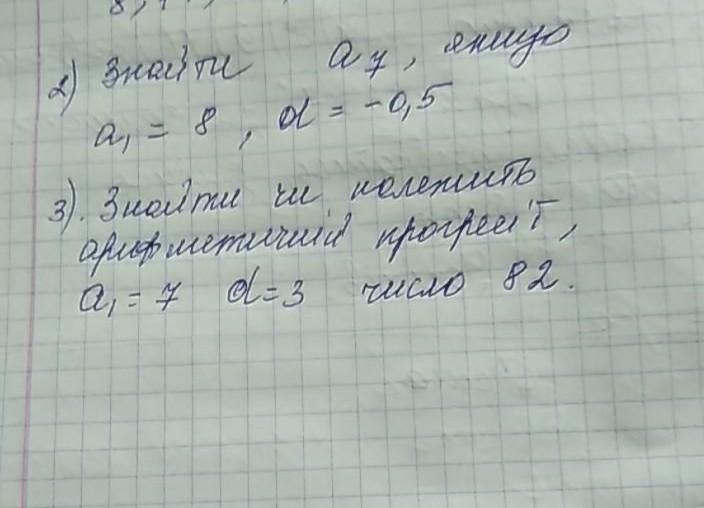 2) Знайти a7, якщо
a1 = 8, d = -0,5
3). Знайти чи належить
арифметичній прогресії,
a1 = 7 d = 3 число 82.